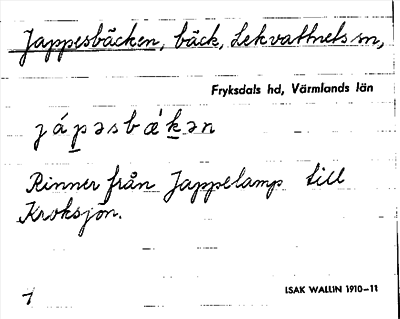 Jappesbäcken, bäck, Lekvattnets sn,
Fryksdals hd, Värmlands län
jápəsbǽkən
Rinner från Jappelamp till
Kroksjön.
1
ISAK WALLIN 1910-11